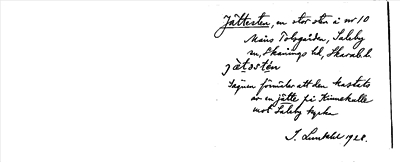 Jättesten, en stor sten å nr 10
Måns Tolsgården, Saleby
sn, Skånings hd, Skarab. l.
jætəstén
Sägnen förmäler att den kastats
av en jätte på Kinnekulle
mot Saleby kyrka
1928.